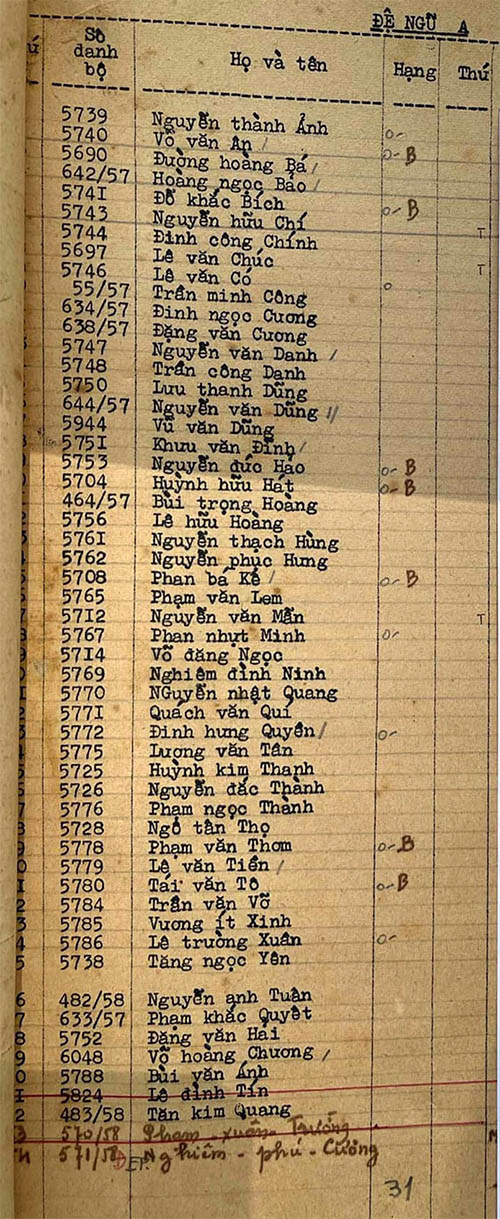 ĐỆ NGŨ A
Số danh bộ Họ và tên Hạng Thứ
5739 Nguyễn thành Ánh
5740 Võ văn Ấn / o-
5690 Đường hoàng Bá / o- B
642/57 Hoàng ngọc Bảo /
574I Đỗ khắc Bích
5743 Nguyễn hữu Chí o- B
5744 Đinh công Chính T
5697 Lê văn Chúc
5746 Lê văn Có T
55/57 Trần minh Công o
634/57 Đinh ngọc Cương
638/57 Đặng văn Cương
5747 Nguyễn văn Danh /
5748 Trần công Danh
5750 Lưu thanh Dũng
644/57 Nguyễn văn Dũng //
5944 Vũ văn Dũng
575I Khưu văn Đĩnh /
5753 Nguyễn đức Hảo o- B
5704 Huỳnh hữu Hát o- B
464/57 Bùi trọng Hoàng
5756 Lê hữu Hoàng
576I Nguyễn thạch Hùng
5762 Nguyễn phục Hưng
5708 Phan bá Kế / o- B
5765 Phạm văn Lem
57I2 Nguyễn văn Mẫn T
5767 Phan nhựt Minh o-
57I4 Võ đăng Ngọc
5769 Nghiêm đình Ninh
5770 NGuyễn nhật Quang
577I Quách văn Quí
5772 Đinh hưng Quyền / o-
5775 Lương văn Tân
5725 Huỳnh kim Thanh
5726 Nguyễn đắc Thành
5776 Phạm ngọc Thành
5728 Ngô tấn Thọ
5778 Phạm văn Thơm o- B
5779 Lê văn Tiến /
5780 Tái văn Tô o- B
5784 Trần văn Võ
5785 Vương ít Xinh
5786 Lê trường Xuân o-
5738 Tăng ngọc Yên
482/58 Nguyễn anh Tuấn
633/57 Phạm khắc Quyết
5752 Đặng văn Hai
6048 Võ hoàng Chương /
5788 Bùi văn Ánh
5824 Lê đình Tín
483/58 Tăn kim Quang
570/58 Phạm - xuân - Trường
571/58 Nghiêm - phú - Cường
31